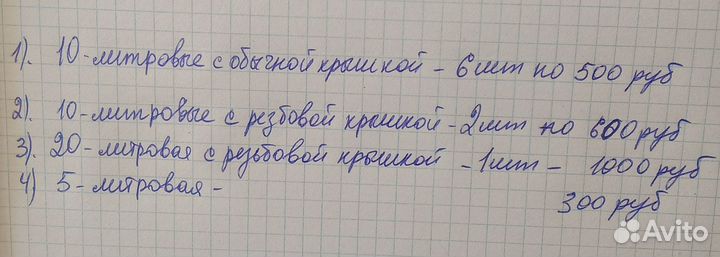 1). 10-литровые с обычной крышкой - 6 шт по 500 руб
2). 10-литровые с резбовой крышкой - 2 шт по 600 руб
3). 20-литровая с резьбовой крышкой - 1 шт - 1000 руб
4) 5-литровая - 300 руб
Avito